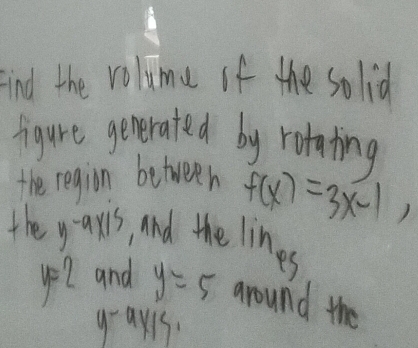 Find the volume of the solid
figure generated by rotating
the region between f(x)=3x-1,
the y-axis, and the lines
y=2 and y=5 around the
y-axis.